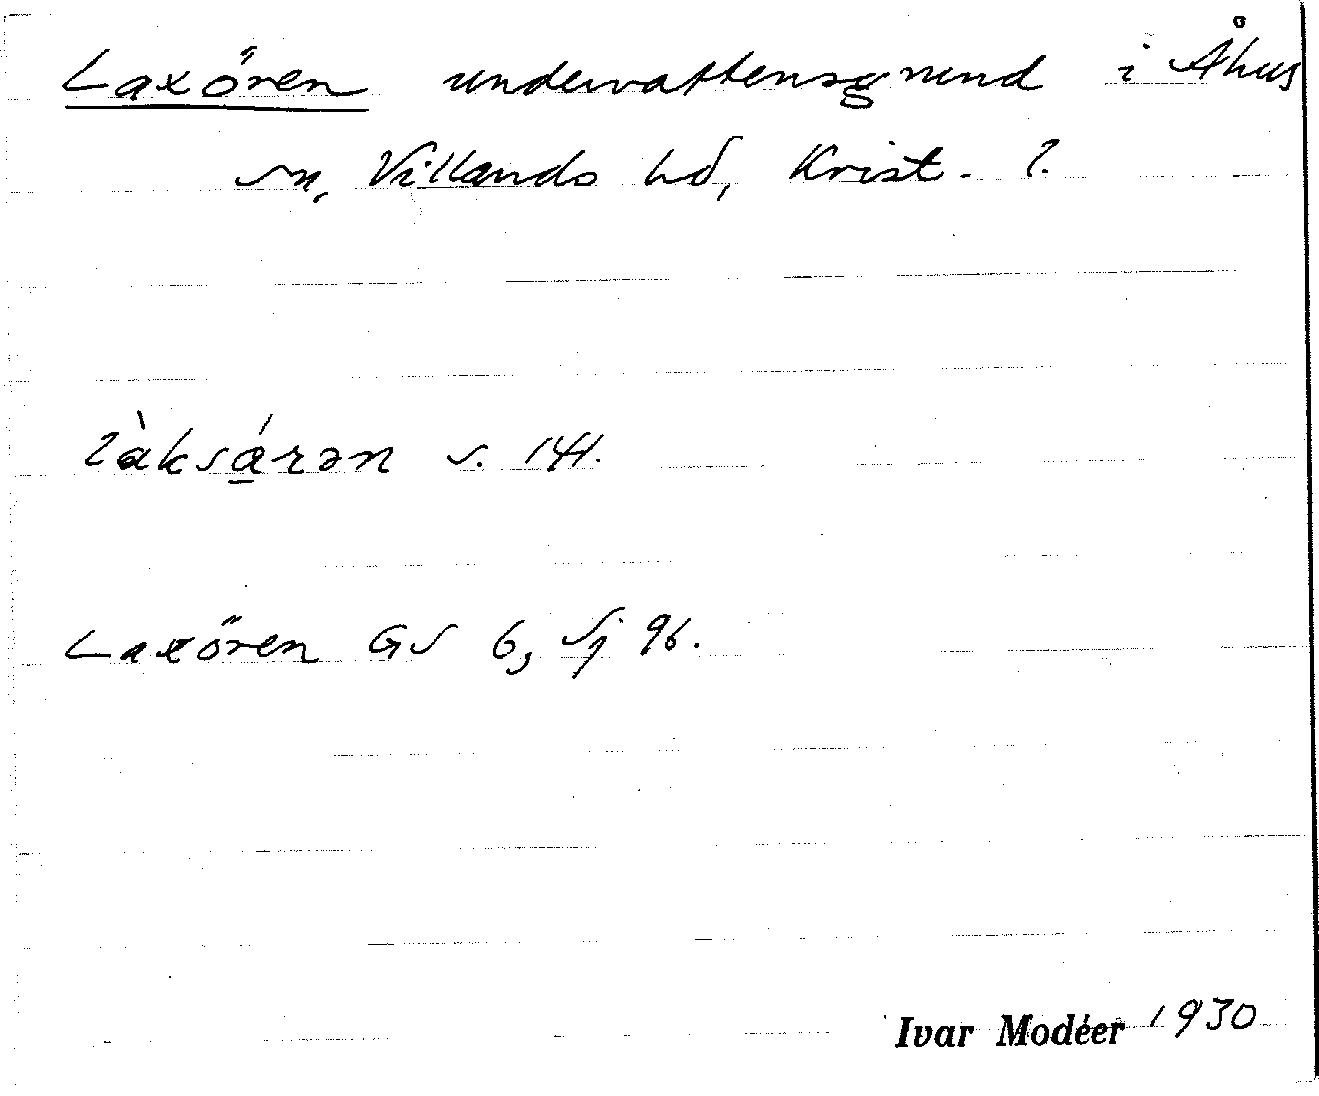 Laxören undervattensgrund i Åhus
sn, Villands hd, Krist. l.
làksá̱rən s. 141.
Laxören GS 6, Sj 96.
Ivar Modéer 1930